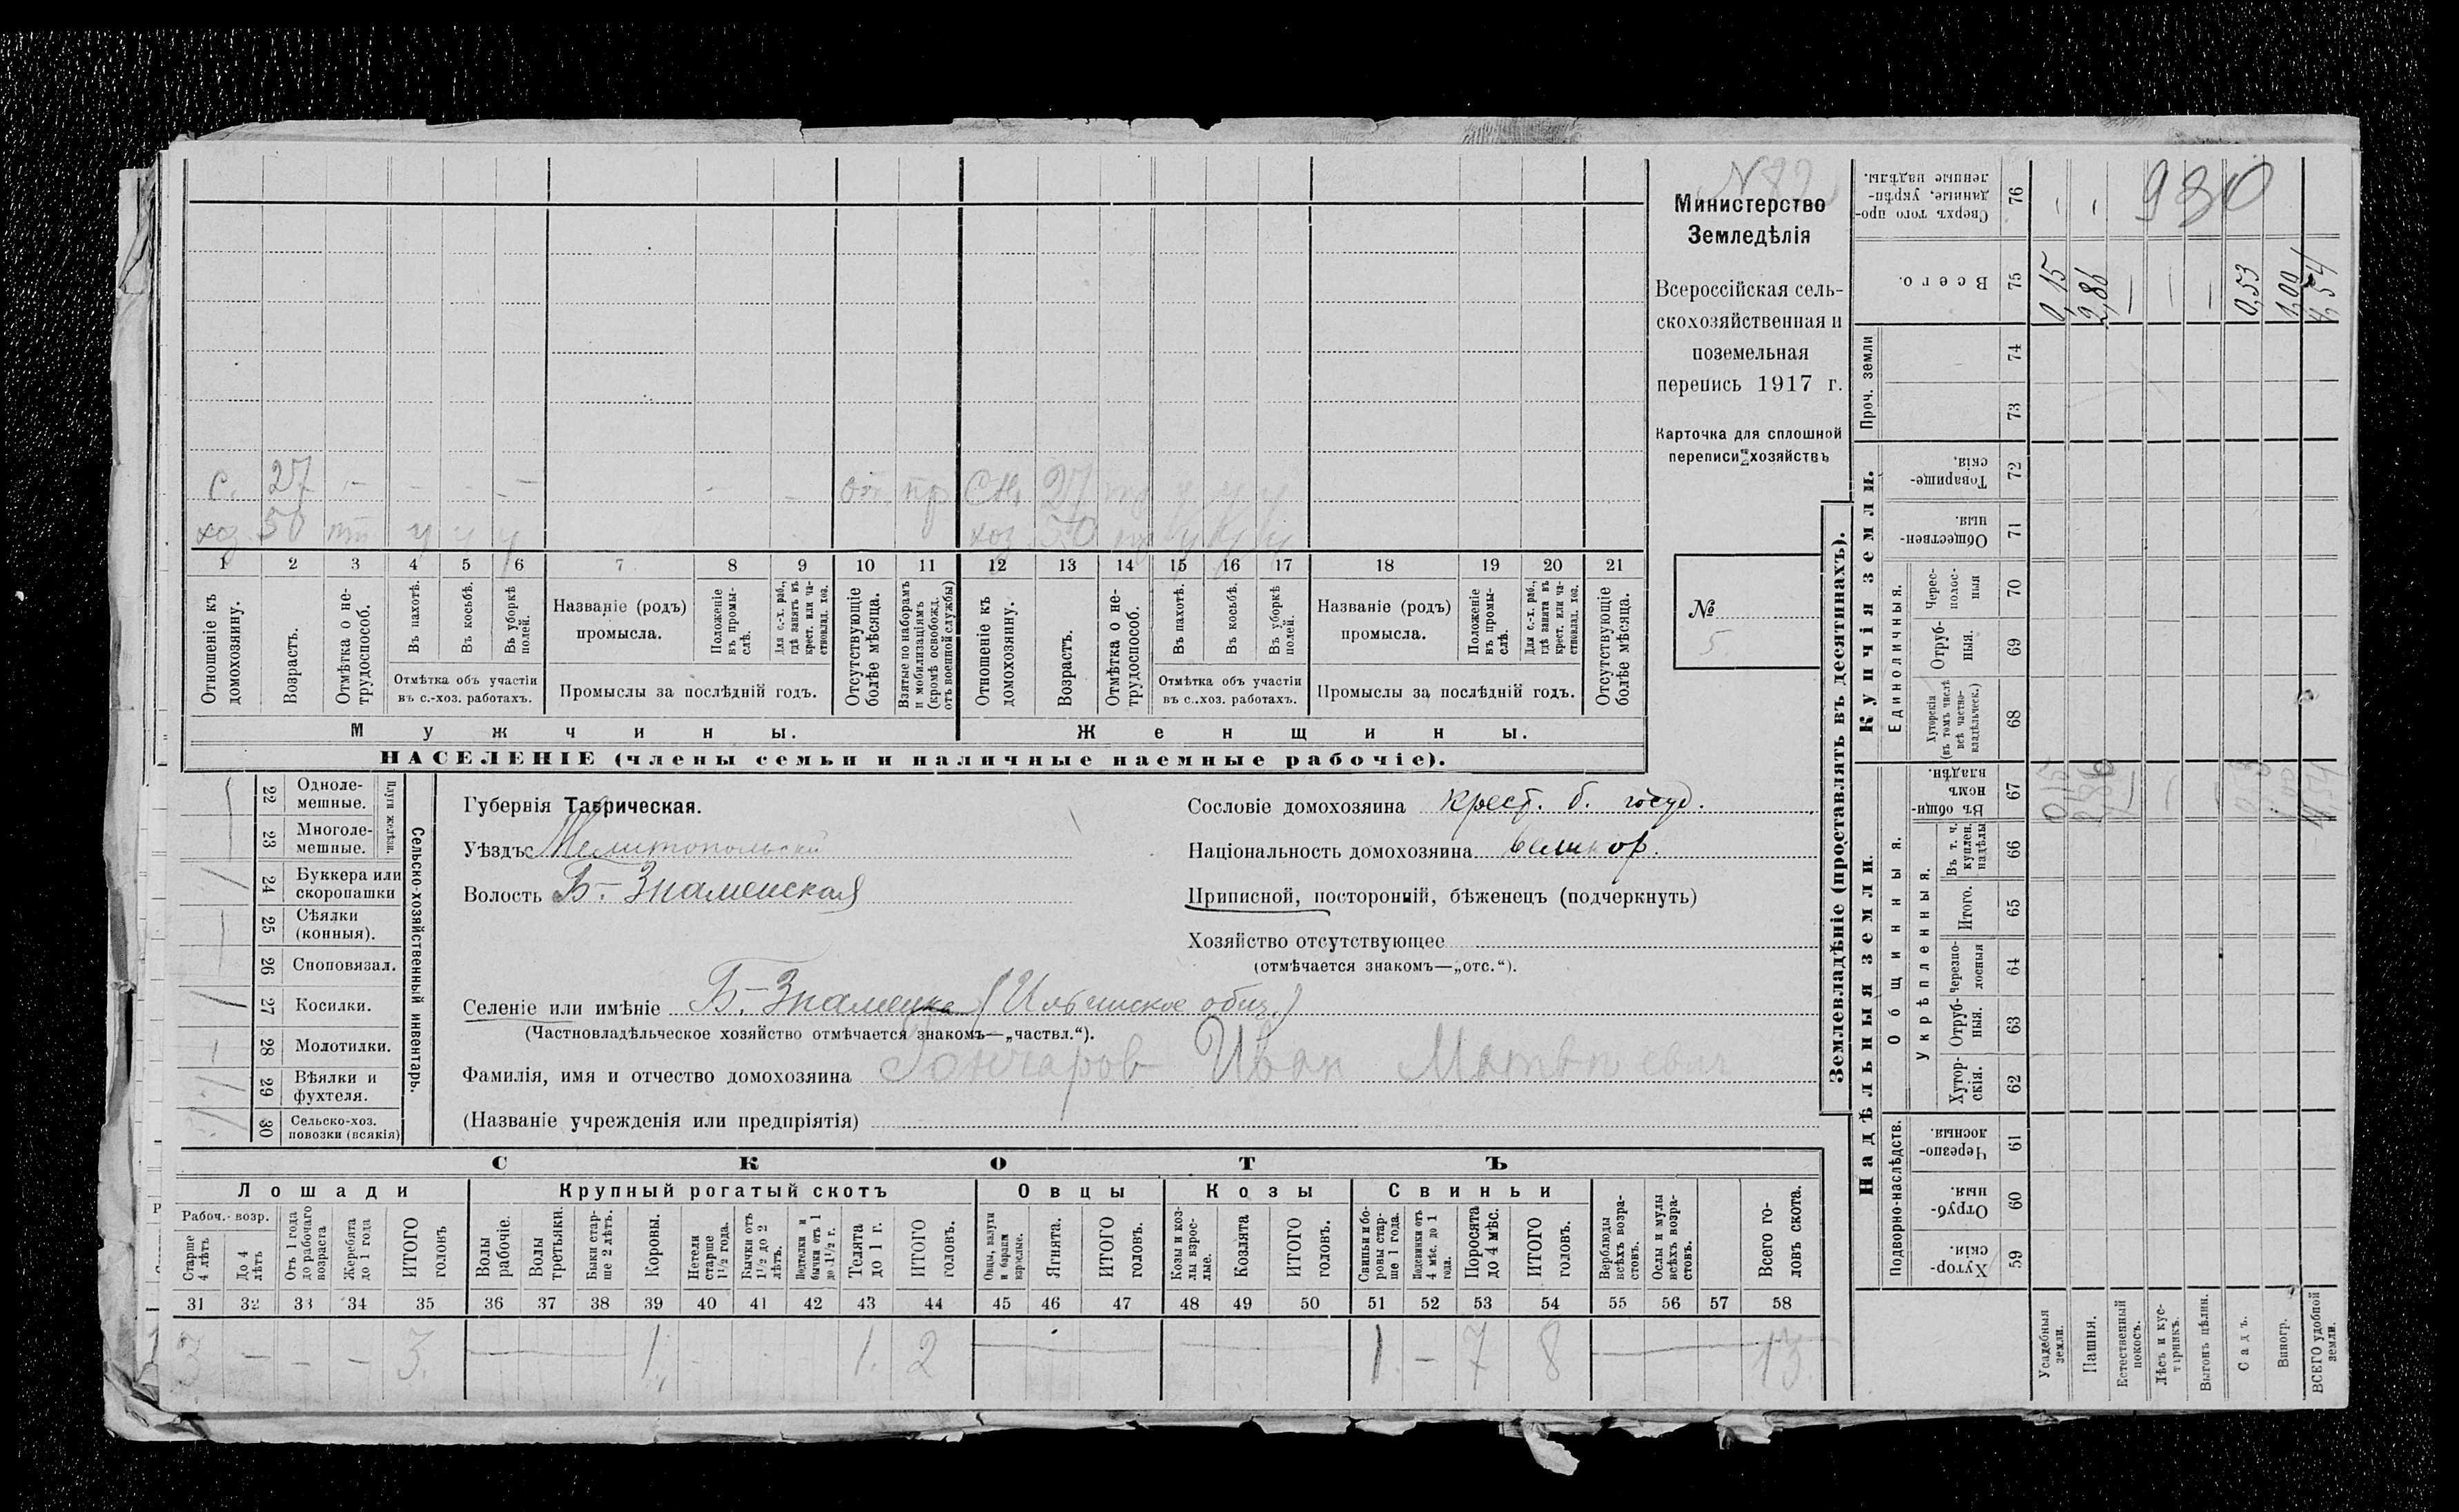 N 82
Министерство
Земледѣлія
Всероссійская сель-
скохозяйственная и
поземельная
перепись 1917 г.
Карточка для сплошной
переписи хозяйствъ
№
5.
с. 27 – – – – – – от пр сн. 27 пр у у у
хоз 50 пт у у у хоз. 50 пр у у у
1 2 3 4 5 6 7 8 9 10 11 12 13 14 15 16 17 18 19 20 21
Отношеніе къ домохозяину.
Возрастъ.
Отмѣтка о не-трудоспособ.
Въ пахотѣ.
Въ косьбѣ.
Въ уборкѣ полей.
Отмѣтка объ участіи
въ с.-хоз. работахъ.
Названіе (родъ)
промысла.
Положеніе въ промы-слѣ.
Для с.-х. раб., гдѣ занятъ въ крест. или ча-стновлад. хоз.
Промыслы за послѣдній годъ.
Отсутствующіе болѣе мѣсяца.
Взятые по наборамъ и мобилизаціямъ (кромѣ освобожд. отъ военной службы)
Отношеніе къ домохозяину.
Возрастъ.
Отмѣтка о не-трудоспособ.
Въ пахотѣ.
Въ косьбѣ.
Въ уборкѣ полей.
Отмѣтка объ участіи
въ с..хоз. работахъ.
Названіе (родъ)
промысла.
Положеніе въ промы-слѣ.
Для с.-х. раб., гдѣ занята въ крест. или ча-стновлад. хоз.
Промыслы за послѣдній годъ.
Отсутствующіе болѣе мѣсяца.
Мужчины. Женщины.
НАСЕЛЕНІЕ (члены семьи и наличные наемные рабочіе).
22 Одноле-мешные.
23 Многоле-мешные.
Плуги желѣзн.
24 Буккера или скоропашки
25 Сѣялки (конныя).
26 Сноповязал.
27 Косилки.
28 Молотилки. 1
29 Вѣялки и фухтеля.
30 Сельско-хоз. повозки (всякія)
Сельско-хозяйственный инвентарь.
Губернія Таврическая.
Уѣздъ Мелитопольскій
Волость Б-Знаменская
Сословіе домохозяина крест. б. госуд.
Національность домохозяина великор.
Приписной, посторонній, бѣженецъ (подчеркнуть)
Хозяйство отсутствующее
(отмѣчается знакомъ—„отс.“).
Селеніе или имѣніе Б-Знаменка (Ильинское общ.)
(Частновладѣльческое хозяйство отмѣчается знакомъ—„частвл.“).
Фамилія, имя и отчество домохозяина Гончаров Иван Матвеевич
(Названіе учрежденія или предпріятія)
СКОТЪ
Лошади Крупный рогатый скотъ Овцы Козы Свиньи
Рабоч. возр.
Старше 4 лѣтъ
До 4 лѣтъ
Отъ 1 года до рабочаго возраста
Жеребята до 1 года
ИТОГО головъ
Волы рабочіе.
Волы третьяки.
Быки стар-ше 2 лѣтъ.
Коровы.
Нетели старше 1½ года.
Бычки отъ 1½ до 2 лѣтъ.
Подтелки и бычки отъ 1 до 1½ г.
Телята до 1 г.
ИТОГО головъ.
Овцы, валухи и бараны взрослые.
Ягнята.
ИТОГО головъ.
Козы и коз-лы взрос-лые.
Козлята
ИТОГО головъ.
Свиньи и бо-ровы стар-ше 1 года.
Подсвинки отъ 4 мѣс. до 1 года.
Поросята до 4 мѣс.
ИТОГО головъ.
Верблюды всѣхъ возра-стовъ.
Ослы и мулы всѣхъ возра-стовъ.
Всего го-ловъ скота.
31 32 33 34 35 36 37 38 39 40 41 42 43 44 45 46 47 48 49 50 51 52 53 54 55 56 57 58
3 – – – 3. 1 1. 2 1. – 7 8 13.
Землевладѣніе (проставлять въ десятинахъ).
Сверхъ того про-данные, укрѣп-ленные надѣлы. 76
980
Всего. 75 0,15 2,86 – – – 0,53 1,00 4,54
Проч. земли 74 73
Купчія земли.
Товарище-скія. 72
Обществен-ныя. 71
Единоличныя.
Черес-полос-ныя 70
Отруб-ныя. 69
Хуторскія (въ томъ числѣ всѣ частно-владѣльческ.) 68
Надѣльныя земли.
Общинныя.
Въ общи-номъ владѣн. 67 0,15 2,86 – – – 4,54
Укрѣпленныя.
Въ т. ч. куплен. надѣлы 66
Итого. 65
Черезпо-лосныя 64
Отруб-ныя. 63
Хутор-скія. 62
Подворно-наслѣдств.
Черезпо-лосныя. 61
Отруб-ныя. 60
Хутор-скія. 59
Усадебныя земли.
Пашня.
Естественный покосъ.
Лѣсъ и кус-тарникъ.
Выгонъ цѣлин.
Садъ.
Виногр.
ВСЕГО удобной земли.